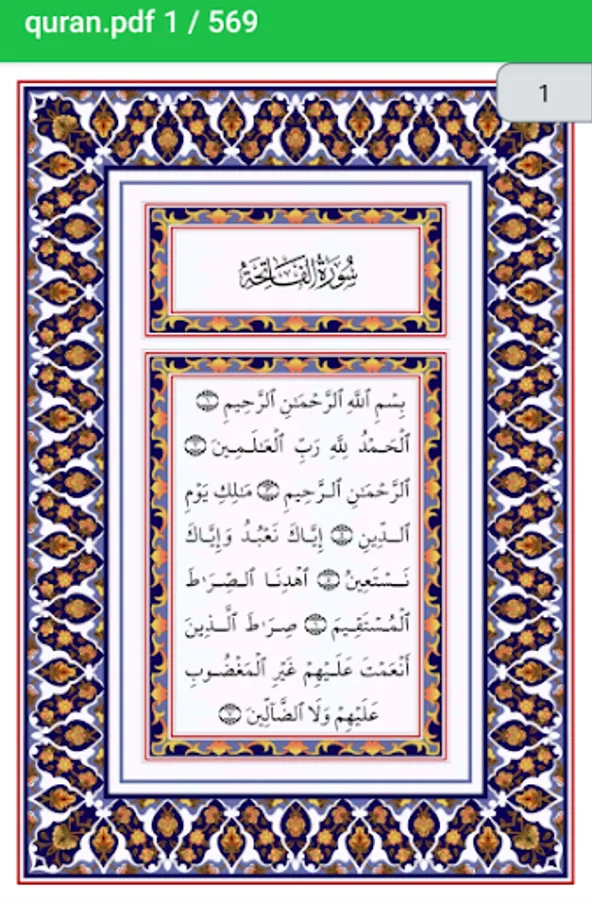 quran.pdf 1 / 569
1
سُورَةُ الفَاتِحَةِ
بِسْمِ ٱللَّهِ ٱلرَّحْمَٰنِ ٱلرَّحِيمِ ١
ٱلْحَمْدُ لِلَّهِ رَبِّ ٱلْعَٰلَمِينَ ٢
ٱلرَّحْمَٰنِ ٱلرَّحِيمِ ٣ مَٰلِكِ يَوْمِ
ٱلدِّينِ ٤ إِيَّاكَ نَعْبُدُ وَإِيَّاكَ
نَسْتَعِينُ ٥ ٱهْدِنَا ٱلصِّرَٰطَ
ٱلْمُسْتَقِيمَ ٦ صِرَٰطَ ٱلَّذِينَ
أَنْعَمْتَ عَلَيْهِمْ غَيْرِ ٱلْمَغْضُوبِ
عَلَيْهِمْ وَلَا ٱلضَّآلِّينَ ٧